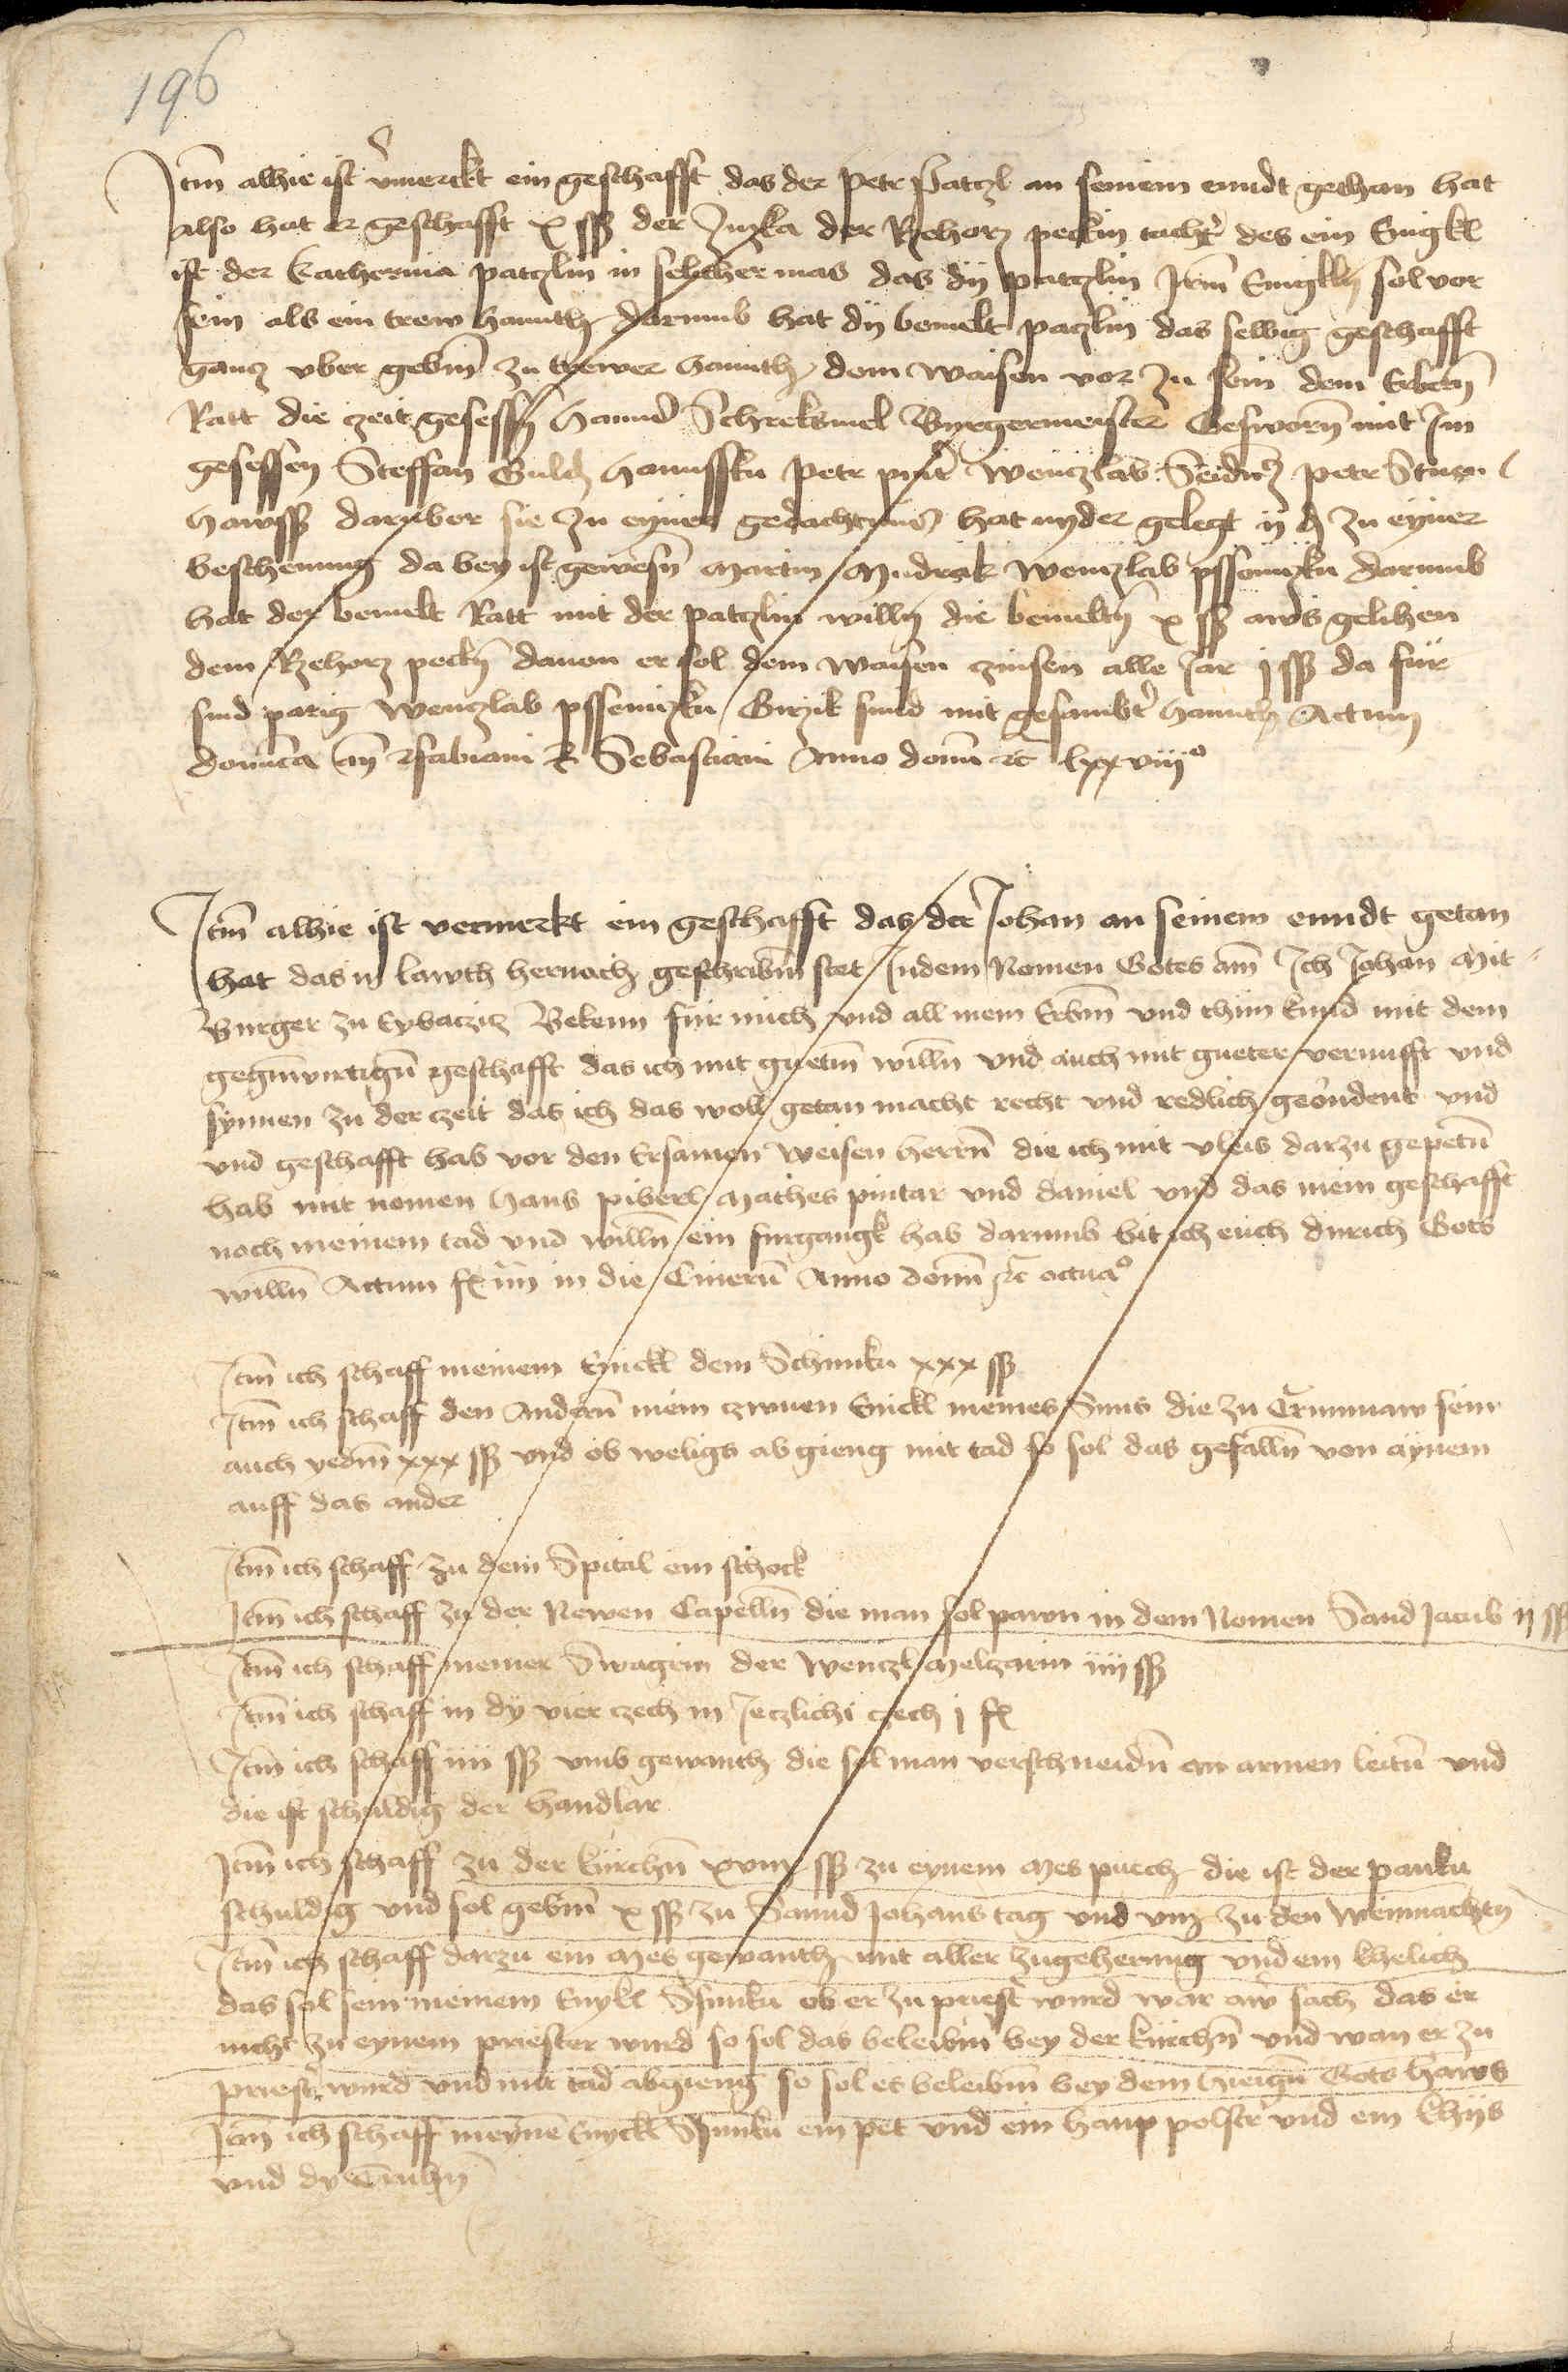 196
Itm̄ alhie ist v̄merckt ein geschafft das der Petr Patczl an seinem enndt gethan hat
also hat er geschafft x ss der Zuzka der Rzehorz peckin tacht̄ des ein Enigkl
ist der Katherina patczlin in selicher mas das dij patczlin Irm̄ Enigklh sol vor
sein als ein trew hannth darumb hat dij bemelt paczlin das selbig geschafft
gancz vber gebm̄ zu trewer hannth dem waisen vor zu sein dem Erbern̄
Ratt die czeit gesessen Hannus Schreksmel Burgermeister Gesworn̄ mit Im
gesessen Steffan Guldē Hanussku Petr pint̄ Wenczlab Seidnicz Petr Sturm
Hawss daruber sie zu eyner gedachtnus hat nyder gelegt ij d zu eyner
beschennung da bey ist gewesn̄ Martin Mudrak Wenczlab pssenizku darumb
hat der bemelt Ratt mit der patczlin willn̄ die bemeltn̄ x ss aws gelihen
dem Rzehorz peckn̄ dauon er sol dem waisen czinsen alle Jar j ss da fur
sind porig Wenczlab pssenizku Girzik smid mit gesambt̄ hannth Actum
domīca an̄ fabiani et Sebastiani Anno domī etc lxxviij°
Itm̄ alhie ist vermerkt ein geschafft das der Johan an seinem enndt getan
hat das in lawth hernoch geschribm̄ stet Indem Nomen Gotes am̄ Ich Johan Mit
Burger zu Eybaczicz Bekenn für mich vnd all mein Erbm̄ vnd thün kund mit dem
gegn̄wirtign̄ geschafft das ich mit guetm̄ willn̄ vnd auch mit gueter vernufft vnd
synnen zu der czeit das ich das woll getan macht recht vnd redlich geordent vnd
vnd geschafft hab vor den Ersamen weisen herrn̄ die ich mit vleis darzu gepetn̄
hab mit nomen Hans piberl Mathes pintar vnd daniel vnd das mein geschafft
noch meinem tad vnd willn̄ ein furgangk hab darumb bit ich euch durich Gots
willn̄ Actum fr̄ iiij in die Cinerū Anno domī etc octua°
Itm̄ ich schaff meinem Enickl dem Schimku xxx ss
Itm̄ ich schaff den Andern̄ mein czwuen Enickl meines Suns die zu Crummaw sein
auch yedm̄ xxx ss vnd ob weligs ab gieng mit tad so sol das gefalln̄ von aynem
auff das ander
Itm̄ ich schaff zu dem Spital ein schock
Itm̄ ich schaff zu der Newen Capelln̄ die man sol pawn in dem Nomen Sand Jacub ij ss
Itm̄ ich schaff meiner Swagrin der Wenczl Melczarin iiij ss
Itm̄ ich schaff in dy vier czech in Jeczlichi czech j fl
Itm̄ ich schaff iiij ss vmb gewanth die sol man verschneidn̄ an armen leitn̄ vnd
die ist schuldig der Handlar
Itm̄ ich schaff zu der kirchn̄ xviij ss zu eynem Mes puech die ist der panku
schuldig vnd sol gebm̄ x ss zu Sannd Johans tag vnd viij zu den Weinnachtn̄
Itm̄ ich schaff darzu ein Mes gewanth mit aller zugeherung vnd ein khelich
das sol sein meinem Enykl Ssimku ob er zu priest̄ wurd war aw sach das er
nicht zu eynem priester wurd so sol das beleibm̄ bey der kirchn̄ vnd wan er zu
priest̄ wurd vnd mit tad abgieng so sol es beleibm̄ bey dem hieign̄ Gots haws
Itm̄ ich schaff meynē Enyckl Ssimku ein pet vnd ein haup polst̄ vnd ein khijs
vnd dy Truhn̄